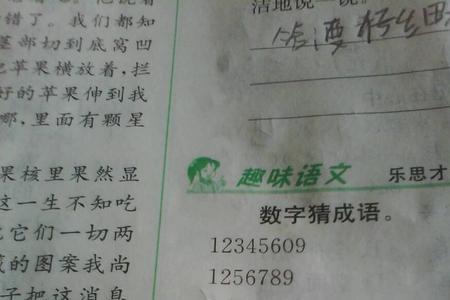 错了。我们都知
部切到底窝凹
苹果横放着,拦
好的苹果伸到我
哪,里面有颗星
果核里果然显
这一生不知吃
它们一切两
的图案我尚
子把这消息
洁地说一说。
趣味语文 乐思才
数字猜成语。
12345609
1256789